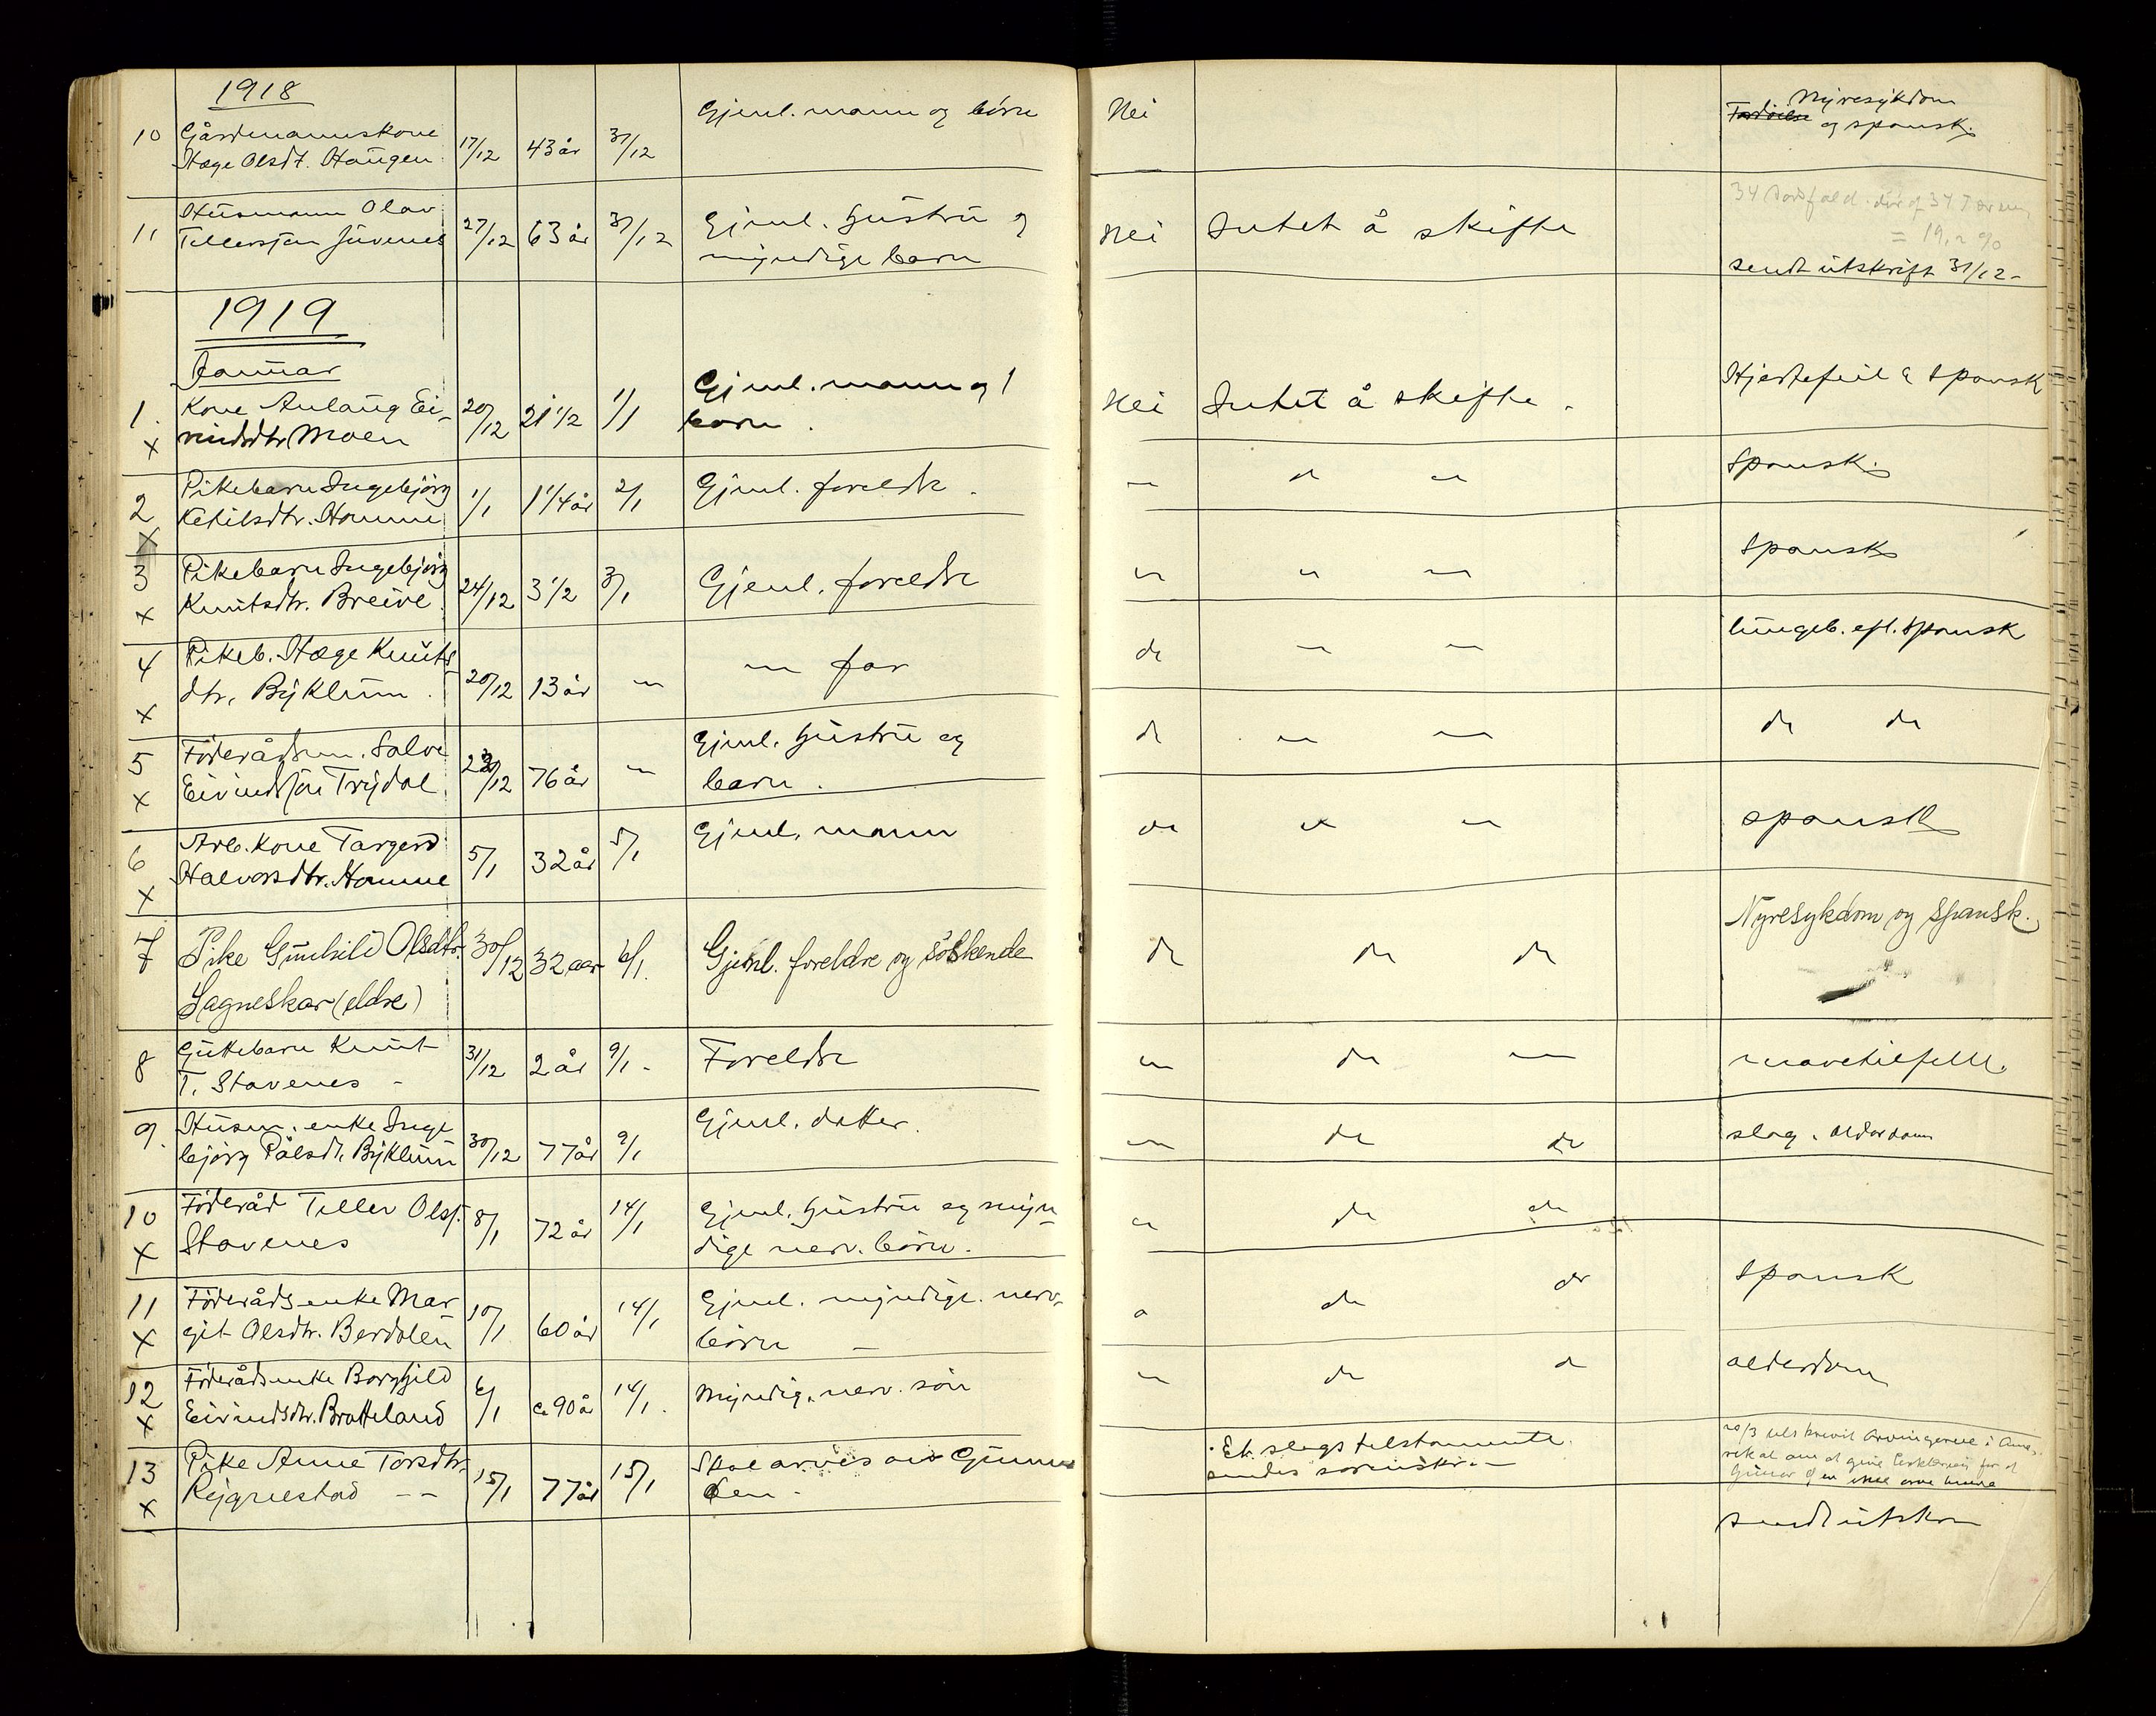 1918
10 Gårdmannskone 17/12 43 år 31/12 Gjenl. mann og börn Nei Nyresykdom
Hæge Olsdt. Haugen og spansk.
11 Husmann Olav 27/12 63 år 31/12 Gjenl. hustru og Nei Intet å skifte
Tellefsjon Juvenes myndige barn
= 19,2 %
sendt utskrift 31/12 -
1919
Januar
1. Kone Anlaug Ei- 20/12 21 1/2 1/1 Gjenl. mann og 1 Nei Intet å skifte. Hjertefeil & Spansk
x vindsdtr Moen barn.
2 Pikebarn Ingebjörg 1/1 1 1/4 år 2/1 Gjenl. foreldre. - " - - " - - " - Spansk.
x Ketilsdtr. Homme
3 Pikebarn Ingebjörg 24/12 3 1/2 3/1 Gjenl. foreldre - " - - " - - " - Spansk
x Knutsdtr. Breive
4 Pikeb. Hæge Knuts 20/12 13 år - " - - " - far do - " - - " - lungeb. eft. Spansk
x dtr. Byklum.
5 Föderådsm. Salve 23/12 76 år - " - Gjenl. hustru og do - " - - " - do do
x Eivindsson Trydal barn.
6 Arb. kone Targerd 5/1 32 år 5/1 Gjenl. mann do - " - - " - spansk
x Halvorsdtr. Homme
7 Pike Gunhild Olsdtr. 30/12 32 aar 6/1. Gjenl. foreldre og söskende do do do Nyresykdom og Spansk.
Lagneskar (eldre)
8 Guttebarn Knut 31/12 2 år 9/1 - Foreldre - " - do - " - mavetilfelle.
T. Stavenes -
9. Husm. enke Inge 30/12 77 år 9/1 Gjenl. datter. - " - do do slag. Alderdom
björg Pålsdt. Byklum
10 Föderåd Tellev Olsf. 8/1 72 år 14/1 Gjenl. hustru og myn- - " - do do
x Stavenes dige nerv. börn.
11 Föderådsenke Mar 10/1 60 år 14/1 Gjenl. myndige nerv. - " - do do Spansk
x git Olsdtr. Berdalen börn -
12 Föderådsenke Borghild 6/1 ca 90 år 14/1. Myndig. nerv. sön - " - do do alderdom
x Eivindsdtr. Bratteland
13 Pike Anne Torsdtr. 15/1 77 år 15/1 Skal arves av Gunnar Et slags testamente
x Rygnestad - - sendes sorenskr. -
sendt utskr